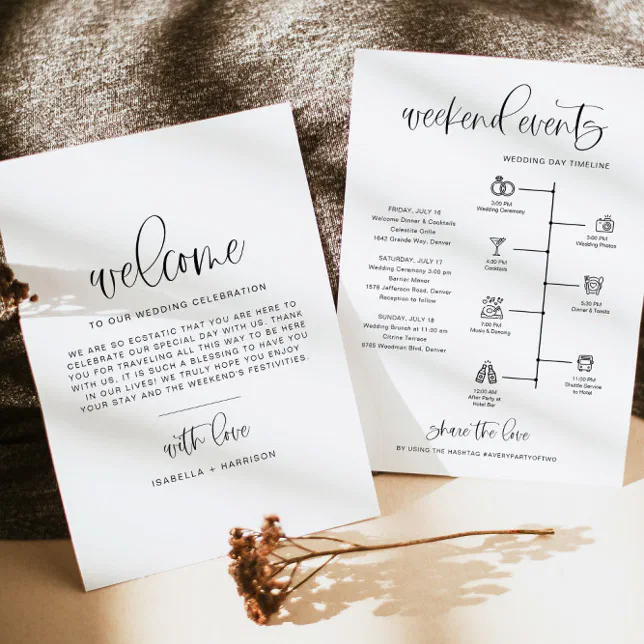 welcome
TO OUR WEDDING CELEBRATION
WE ARE SO ECSTATIC THAT YOU ARE HERE TO
CELEBRATE OUR SPECIAL DAY WITH US. THANK
YOU FOR TRAVELING ALL THIS WAY TO BE HERE
WITH US. IT IS SUCH A BLESSING TO HAVE YOU
IN OUR LIVES! WE TRULY HOPE YOU ENJOY
YOUR STAY AND THE WEEKEND'S FESTIVITIES.
with love
ISABELLA + HARRISON
weekend events
WEDDING DAY TIMELINE
FRIDAY, JULY 16
Welcome Dinner & Cocktails
Celestite Grille
1642 Grande Way, Denver
SATURDAY, JULY 17
Wedding Ceremony 3:00 pm
Barrier Manor
1578 Jefferson Road, Denver
Reception to follow
SUNDAY, JULY 18
Wedding Brunch at 11:00 am
Citrine Terrace
9765 Woodman Blvd, Denver
3:00 PM
Wedding Ceremony
3:00 PM
Wedding Photos
4:30 PM
Cocktails
5:30 PM
Dinner & Toasts
7:00 PM
Music & Dancing
11:00 PM
Shuttle Service
to Hotel
12:00 AM
After Party at
Hotel Bar
share the love
BY USING THE HASHTAG #AVERYPARTYOFTWO